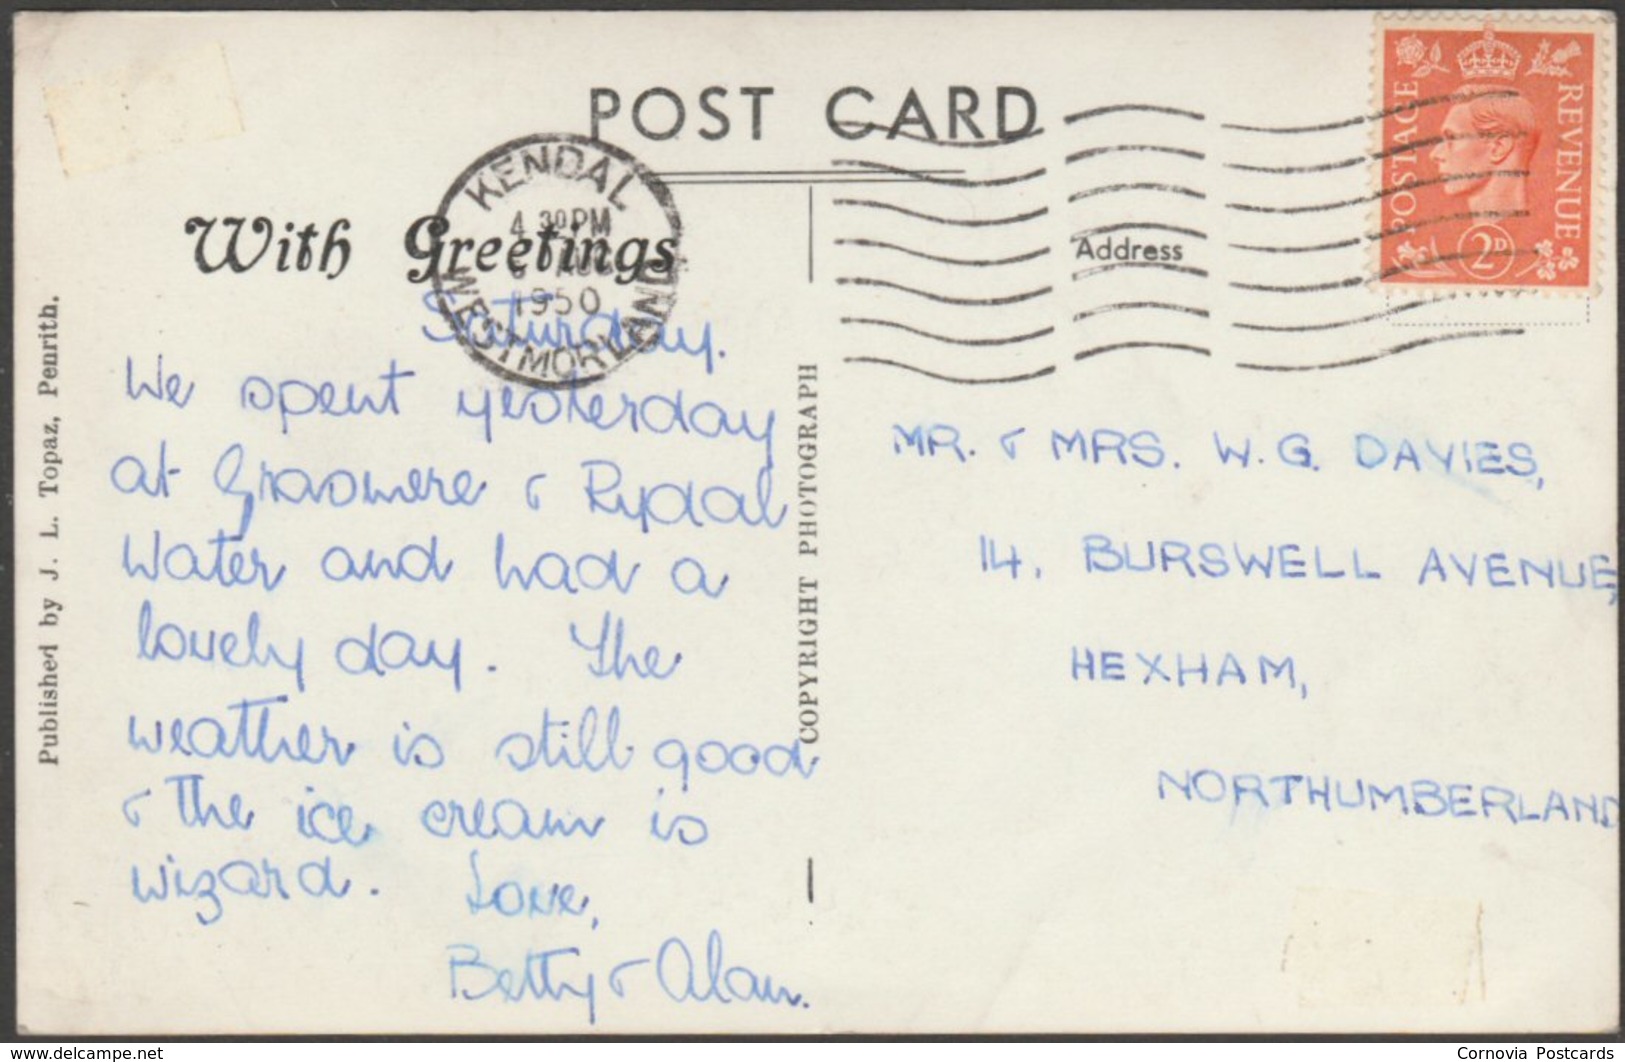 POST CARD
With Greetings
KENDAL
4 30 PM
AUG
1950
WESTMORLAND
POSTAGE
REVENUE
2D
Address
Saturday.
We spent yesterday
at Grasmere & Rydal
Water and had a
lovely day. The
weather is still good
& the ice cream is
wizard. Love,
Betty & Alan.
MR. & MRS. W. G. DAVIES,
14, BURSWELL AVENUE,
HEXHAM,
NORTHUMBERLAND
Published by J. L. Topaz, Penrith.
COPYRIGHT PHOTOGRAPH
www.delcampe.net
Cornovia Postcards